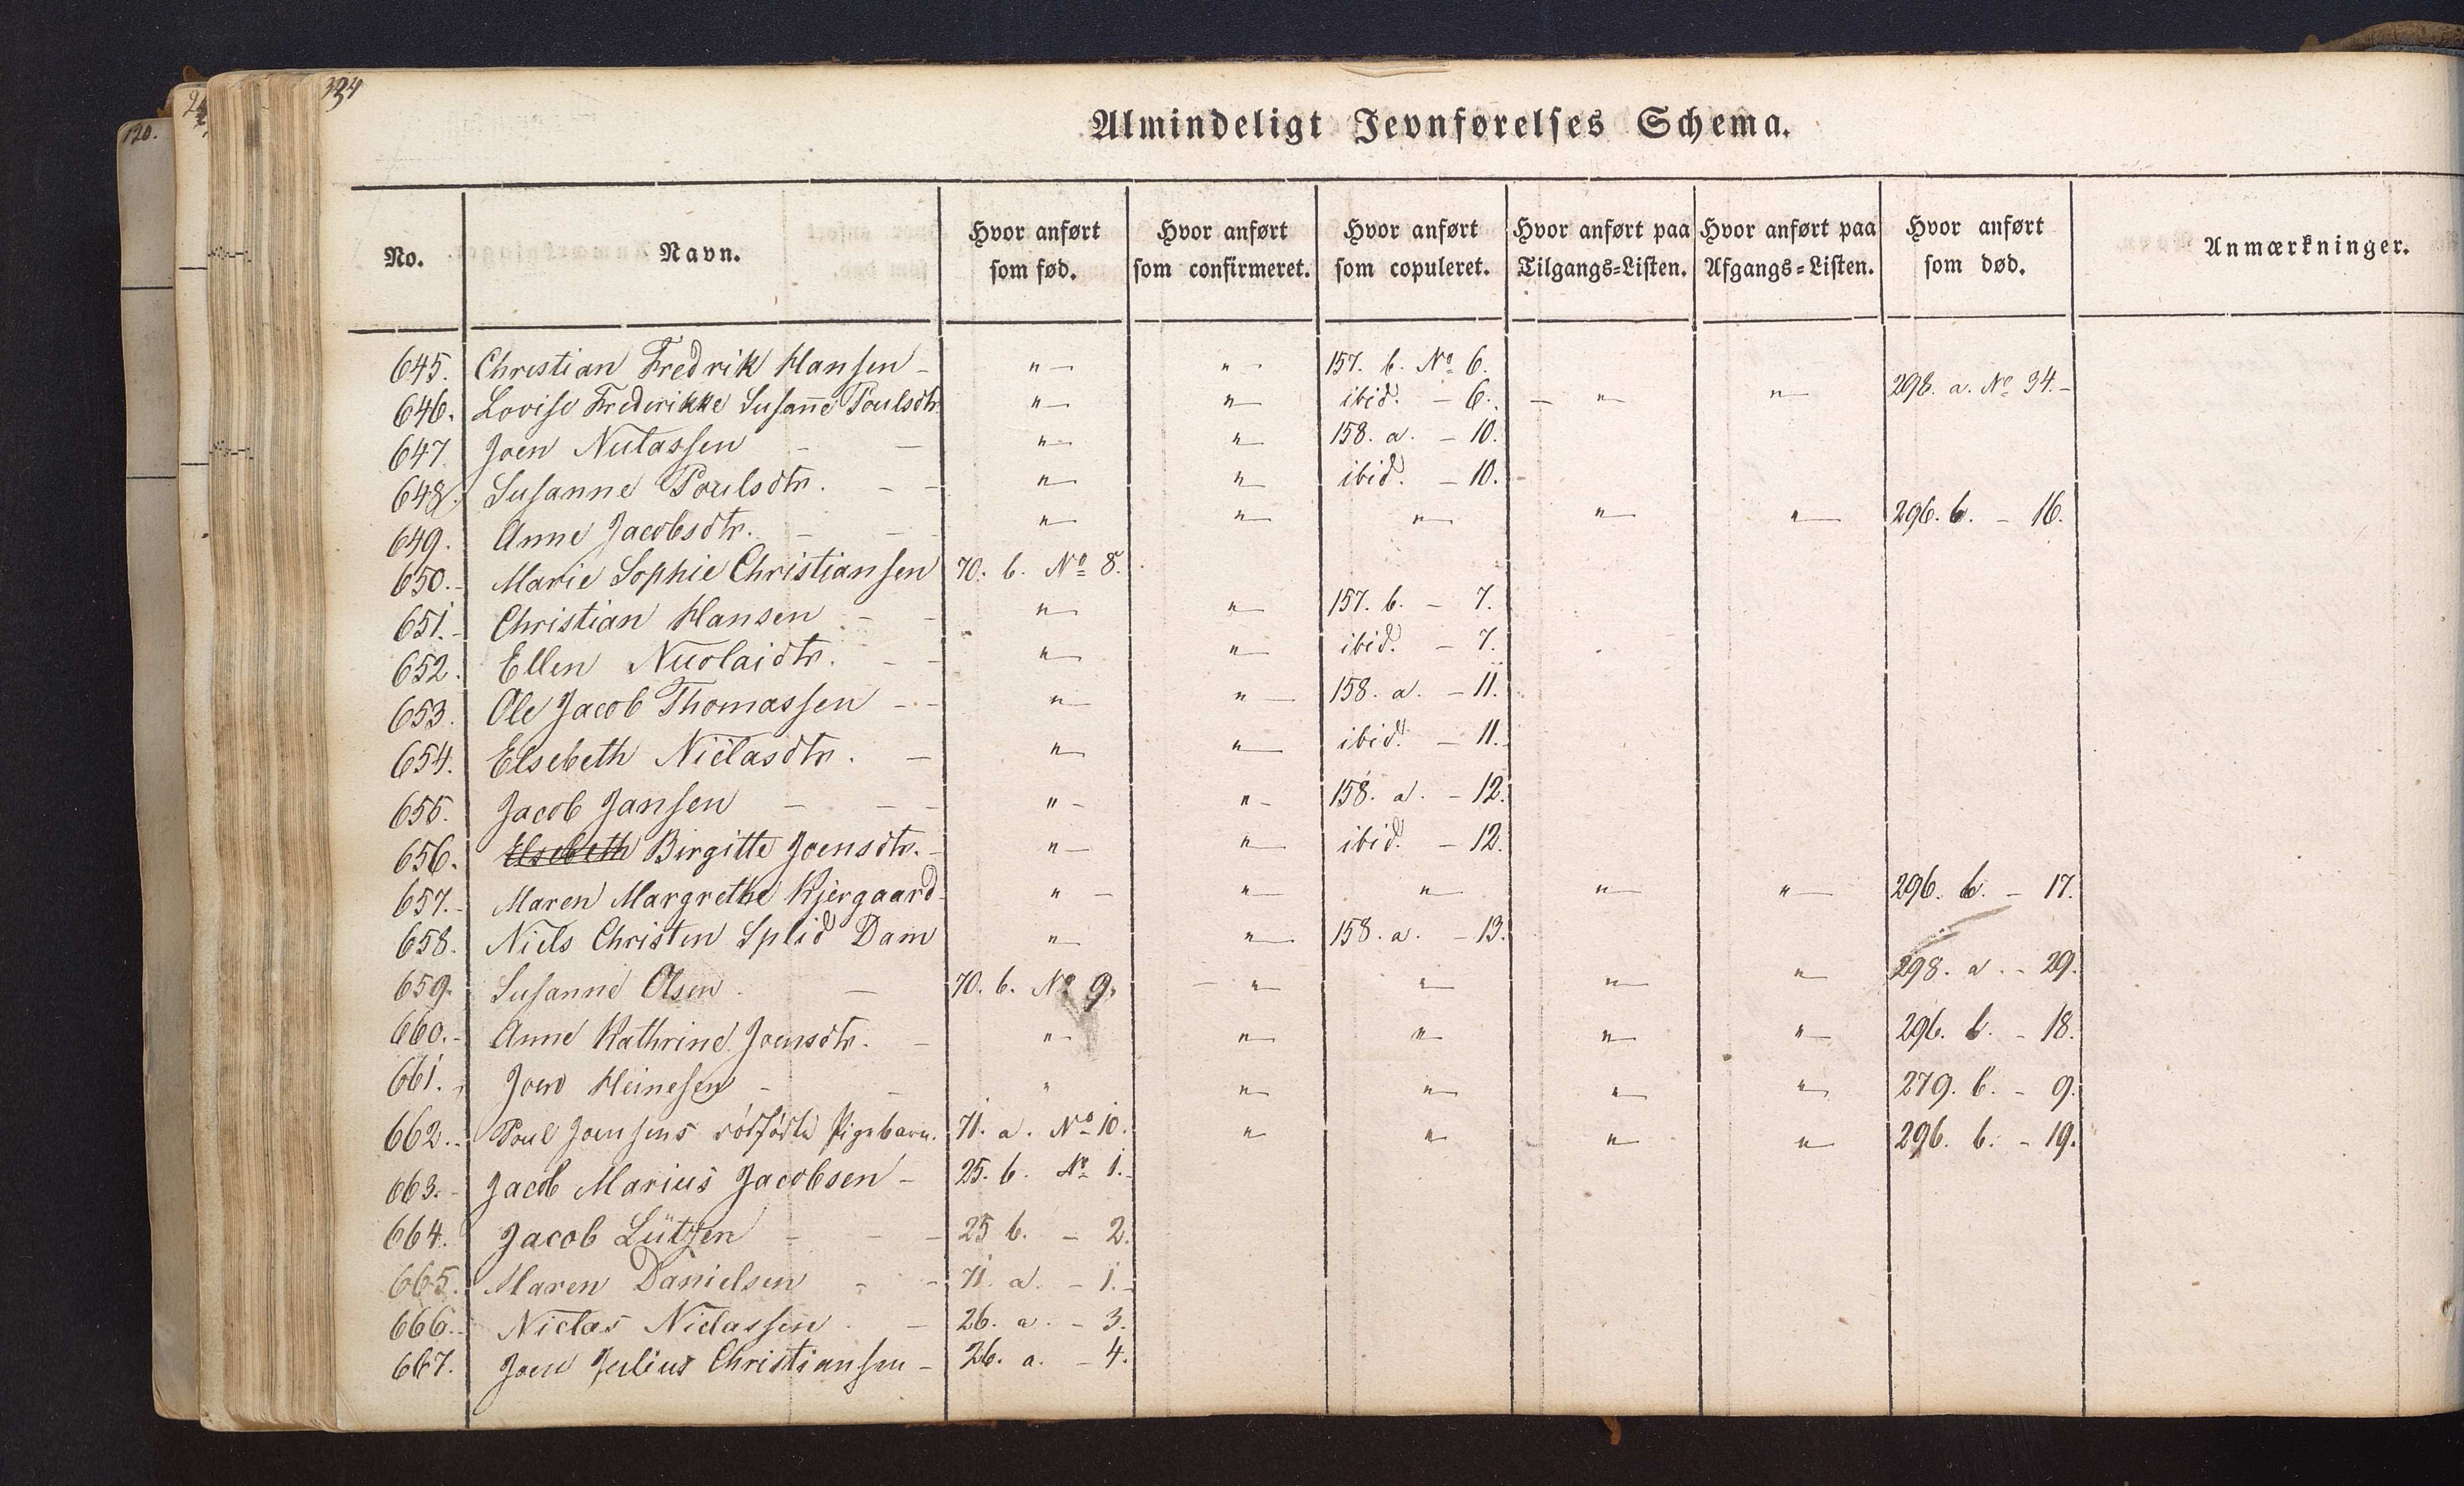 334
120.
Almindeligt Jevnførelses Schema.
No. Navn. Hvor anført som fød. Hvor anført som confirmeret. Hvor anført som copuleret. Hvor anført paa Tilgangs-Listen. Hvor anført paa Afgangs-Listen. Hvor anført som død. Anmærkninger.
645. Christian Fredrik Hansen - " - " - 157. b. No 6.
646. Lovise Frederikke Susanne Poulsdtr. " - " - ibid. - 6. - " - " - 298. a. No 34. -
647 Joen Niclassen - - " - " - 158. a. - 10.
648. Susanne Poulsdtr. - - " - " - ibid. - 10.
649. Anne Jacobsdtr. - - " - " - " - " - " - 296. b. - 16.
650. - Marie Sophie Christiansen 70. b. No 8.
651. - Christian Hansen - - " - " - 157. b. - 7.
652. Ellen Nicolaidtr. - - " - " - ibid. - 7.
653. Ole Jacob Thomassen - - " - " - 158. a. - 11.
654. Elsebeth Niclasdtr. - " - " - ibid. - 11.
655. Jacob Jansen - - - " - " - 158. a. - 12.
656. Elsebeth Birgitte Joensdtr. - " - " - ibid. - 12.
657. - Maren Margrethe Kjergaard - " - " - " - " - " - 296. b. - 17.
658. Niels Christen Splid Dam " - " - 158. a. - 13.
659. Susanne Olsen - 70. b. No 9. - " - " - " - " - 298. a. - 29.
660. - Anne Kathrine Joensdtr. - " - " - " - " - " - 296. b. - 18.
661. Joen Heinesen - - " " - " - " - " - 279. b. - 9.
662. - Poul Joensens dødfødte Pigebarn. 71. a. No 10. " - " - " - " - 296. b. - 19.
663. - Jacob Marius Jacobsen - 25. b. No 1. -
664. Jacob Lützen - - - 25 b. - 2.
665. Maren Danielsen - - 71. a. - 1. -
666. - Niclas Niclassen. - 26. a. - 3.
667. Joen Julius Christiansen - 26. a. - 4.